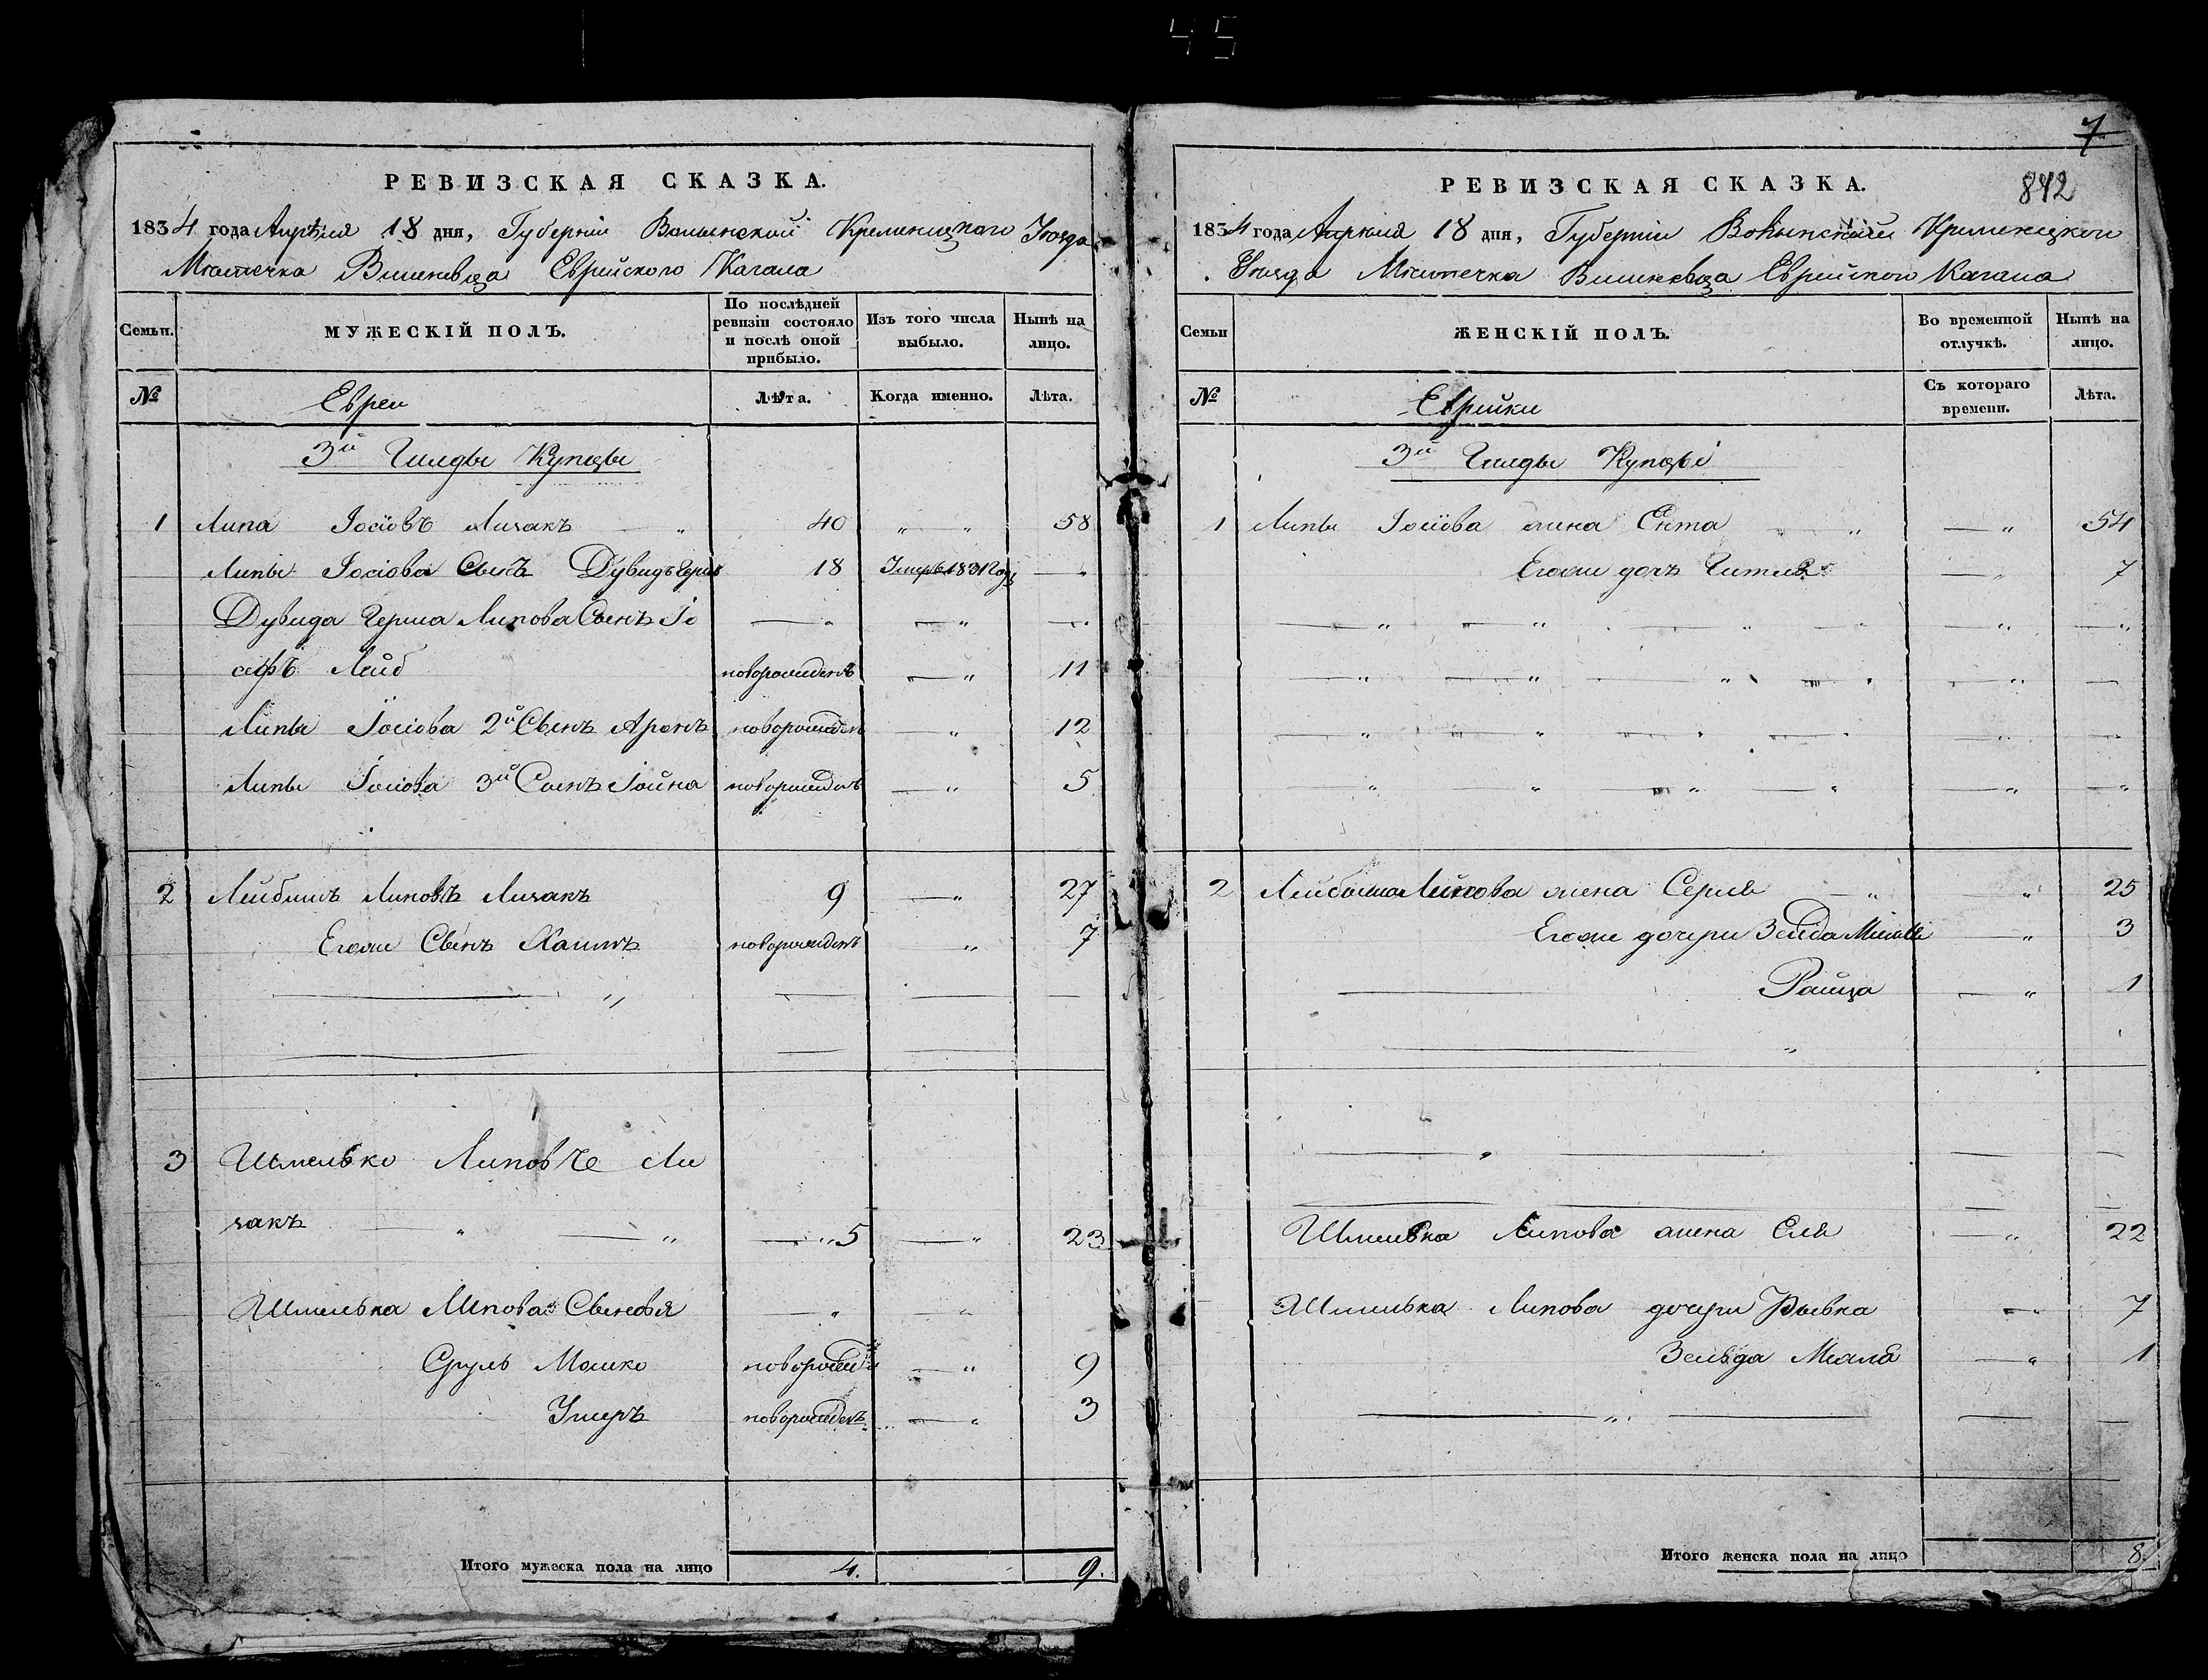 45
РЕВИЗСКАЯ СКАЗКА.
1834 года Апрѣля 18 дня, Губерніи Волынской Кременецкого Уѣзда
Мѣстечка Вишневца Еврейского Кагала
Семьи.
МУЖЕСКІЙ ПОЛЪ.
По послѣдней ревизіи состояло и послѣ оной прибыло.
Изъ того числа выбыло.
Нынѣ на лицо.
№
Евреи
Лѣта.
Когда именно.
Лѣта.
3й Гилды Купцы
1 Липа Іосіовъ Личакъ „ 40 „ „ 58
Липы Іосіова Сынъ Дувидъ Герш 18 Умеръ 1831 Году —
Дувида Герша Липова Сынъ Іо — „ — „ — „
сифъ Лейб новорожденъ — „ 11
Липы Іосіова 2й Сынъ Аронъ новорожден — „ 12
Липы Іосіова 3й Сынъ Іойна новорожденъ — „ 5
2 Лейбишъ Липовъ Личакъ 9 — „ 27
Егоже Сынъ Хаимъ новорожденъ „ 7
3 Шмелько Липовъ Ли
чакъ „ — „ — „ 5 — „ 23
Шмелька Липова Сыновья — „ „
Сруль Мошко новорожден — „ 9
Умеръ новорожденъ — „ 3
Итого мужеска пола на лицо 4. 9.
7
842
РЕВИЗСКАЯ СКАЗКА.
1834 года Апрѣля 18 дня, Губерніи Волынской Кременецкого
Уѣзда Мѣстечка Вишневца Еврейского Кагала
Семьи
ЖЕНСКІЙ ПОЛЪ.
Во временной отлучкѣ.
Нынѣ на лицо.
№
Еврейки
Съ котораго времени.
Лѣта.
3й Гилды Купцы
1 Липы Іосіова жена Ента „ — „ 54
Егоже дочь — „ 7
2 Лейбиша Липова жена — „ „ 25
Егоже дочери „ 3
Раица — „ 1
Шмелька Липова жена — „ 22
Шмелька Липова дочери Рывка — „ 7
Зельда — „ 1
Итого женска пола на лицо 8.